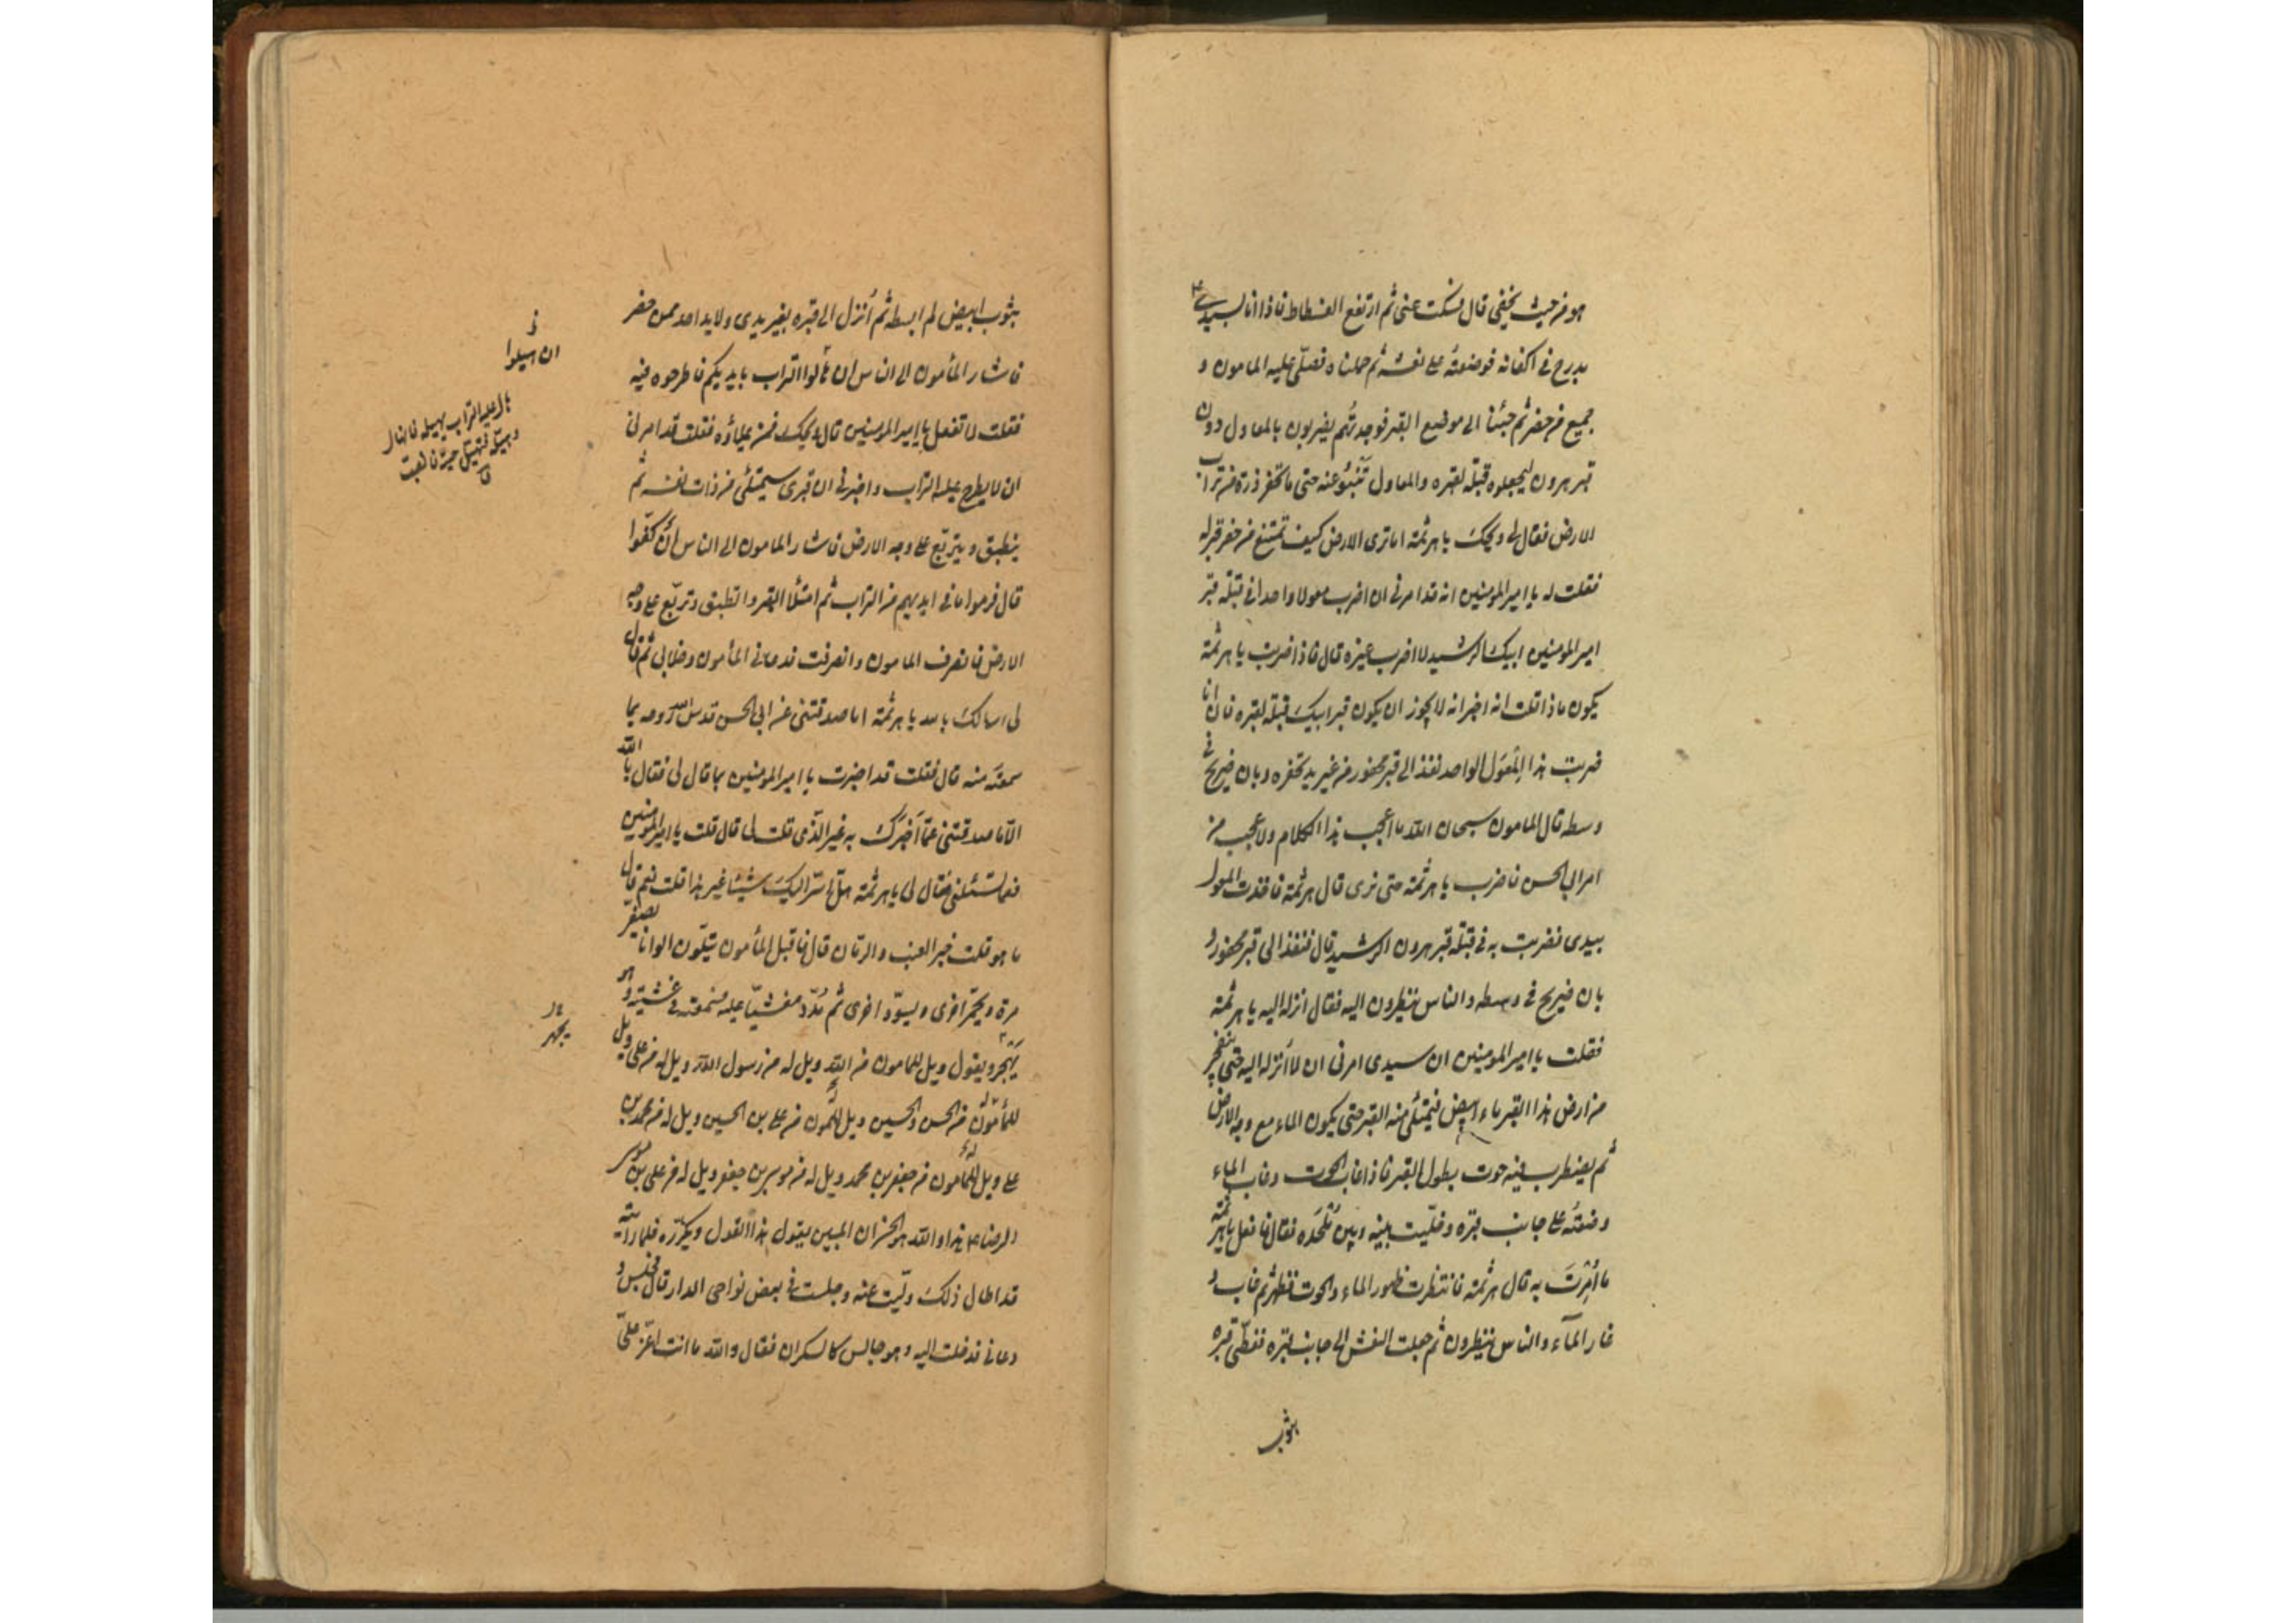 هو من حيث يخفى قال فسكت عنى ثم ارتفع الفسطاط فاذا انا بسيدى ع
مدرج فى اكفانه فوضعته على نعشه ثم حملناه فصلّى عليه المامون و
جميع من حضر ثم جئنا الى موضع القبر فوجدتُهم يضربون بالمعاول دون
قبر هرون ليجعلوه قبلة لقبره والمعاول تنبئو عنه حتى ما تحفر ذرة من تراب
الارض فقال لى ويحكَ يا هرثمة اما ترى الارض كيف تمتنع من حفر قبر له
فقلت له يا امير المومنين انه قد امرنى ان اضرب معولا واحدا فى قبلة قبر
امير المومنين ابيكَ الرشيد لا اضرب غيره قال فاذا ضربت يا هرثمة
يكون ماذا قلت انه اخبر انه لا يجوز ان يكون قبر ابيكَ قبلة لقبره فان انا
ضربت هذا المِعوَل الواحد نفذ الى قبر محفور من غير يد تحفره وبان ضريح فى
وسطه قال المامون سبحان الله ما اعجب هذا الكلام ولا عجب من
امر ابى الحسن فاضرب يا هرثمة حتى نرى قال هرثمة فاخذت المعول
بيدى فضربت به فى قبلة قبر هرون الرشيد قال فنفذ الى قبر محفور و
بان ضريح فى وسطه والناس ينظرون اليه فقال انزله اليه يا هرثمة
فقلت يا امير المومنين ان سيدى امرنى ان لا اُنزله اليه حتى ينفجر
من ارض هذا القبر ماء ابيض فيمتلئ منه القبر حتى يكون الماء مع وجه الارض
ثم يضطرب فيه حوت بطول القبر فاذا غاب الحوت وغاب الماء
وضعتُه على جانب قبره وخلّيت بينه وبين مَلحَده فقال فافعل يا هرثمة
ما اُمِرتَ به قال هرثمة فانتظرت ظهور الماء والحوت فظهر ثم غاب و
غار المآء والناس ينظرون ثم جعلت النعش الى جانب قبره فغطّى قبره
بثوب
بثوب ابيض لم ابسطه ثم اُنزل الى قبره بغير يدى ولا يد احد ممن حضر
فاشار المأمون الى الناس ان هالوا التراب بايديكم فاطرحوه فيه
فقلت لا تفعل يا امير المومنين قال ويحكَ فمن يملاؤه فقلت قد امرنى
ان لا يطرح عليه التراب واخبرنى ان قبرى سيمتلئ من ذات نفسه ثم
ينطبق ويتربّع على وجه الارض فاشار المامون الى الناس أن كفّوا
قال فرموا ما فى ايديهم من التراب ثم امتلأ القبر وانطبق وتربّع على وجه
الارض فانصرف المامون وانصرفت فدعانى المأمون وخلا بى ثم قال
لى اسالكَ بالله يا هرثمة اما صدقتنى عن ابى الحسن قدس الله روحه بما
سمعتَه منه قال فقلت قد اخبرت يا امير المومنين بما قال لى فقال بالله
الّا ما صدقتنى عمّا اَخبَركَ به غير الّذى قلت لى قال قلت يا امير المؤمنين
فعما تسئلنى فقال لى يا هرثمة هل اسرّ اليكَ شيئا غير هذا قلت نعم قال
ما هو قلت خبر العنب والرمّان قال فاقبل المأمون يتلوّن الوانا يصفرّ
مرة ويحمّر اخرى ويسوّد اخرى ثم مُدّد مغشيّا عليه فسمعته فى غشيته وهو
يهجر ويقول ويل للمامون من الله ويل له من رسول الله ويل له من على ويل
للمأمون من الحسن والحسين ويل للمأمون من على بن الحسين ويل له من محمد بن
على ويل للمأمون من جعفر بن محمد ويل له من موسى بن جعفر ويل له من على بن موسى
الرضا ع هذا والله هو الخسران المبين يقول هذا القول ويكرّره فلما رايته
قد اطال ذلكَ ولّيت عنه وجلست فى بعض نواحى الدار قال فجلس و
دعانى فدخلت اليه وهو جالس كالسكران فقال والله ما انت اعزّ علىّ
ان اهيلوا
هال عليه التراب يهيله فانهال
وهيّله فتهيّل
ق
يجهر